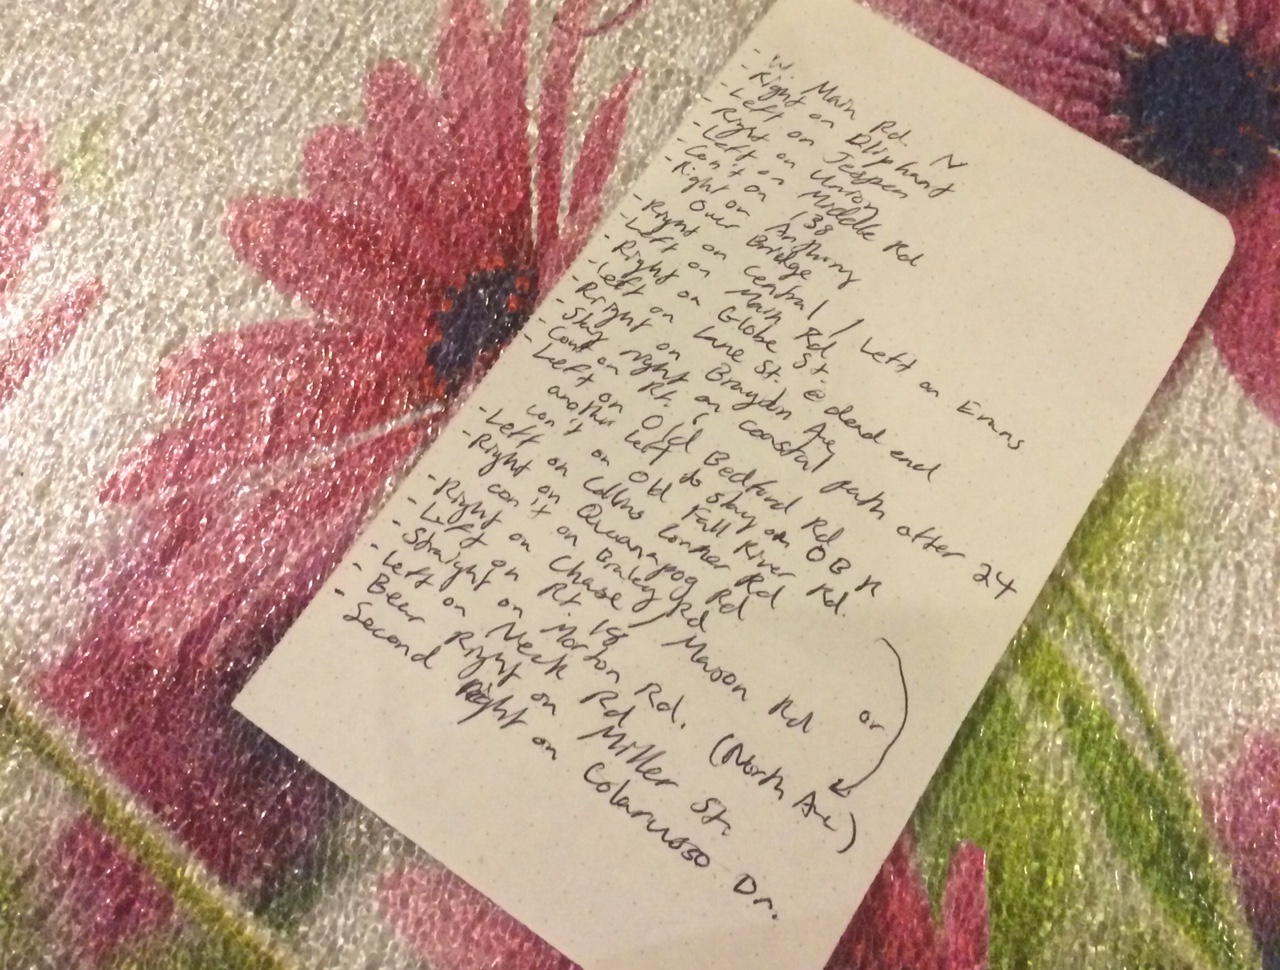 - W. Main Rd. N
- Right on Oliphant
- Left on Jespen
- Right on Union
- Left on Middle Rd
Con't on 138
- Right on Anthony
Over Bridge
- Right on Central / Left on Evans
- Left on Main Rd
- Right on Globe St.
- Left on Lane St. @ dead end
- Right on Braydon Ave
- Stay right on coastal path after 24
- Cont on Rt. 6
- Left on Old Bedford Rd
another left to stay on OB R
con't on Old Fall River Rd.
- Left on Collins Corner Rd
- Right on Quanapog Rd
con't on Braley Rd
- Right on Chase / Mason Rd or
- Left on Rt. 18
- Straight on Morton Rd. (North Ave)
- Left on Neck Rd
- Bear Right on Miller St.
- Second Right on Colarusso Dr.